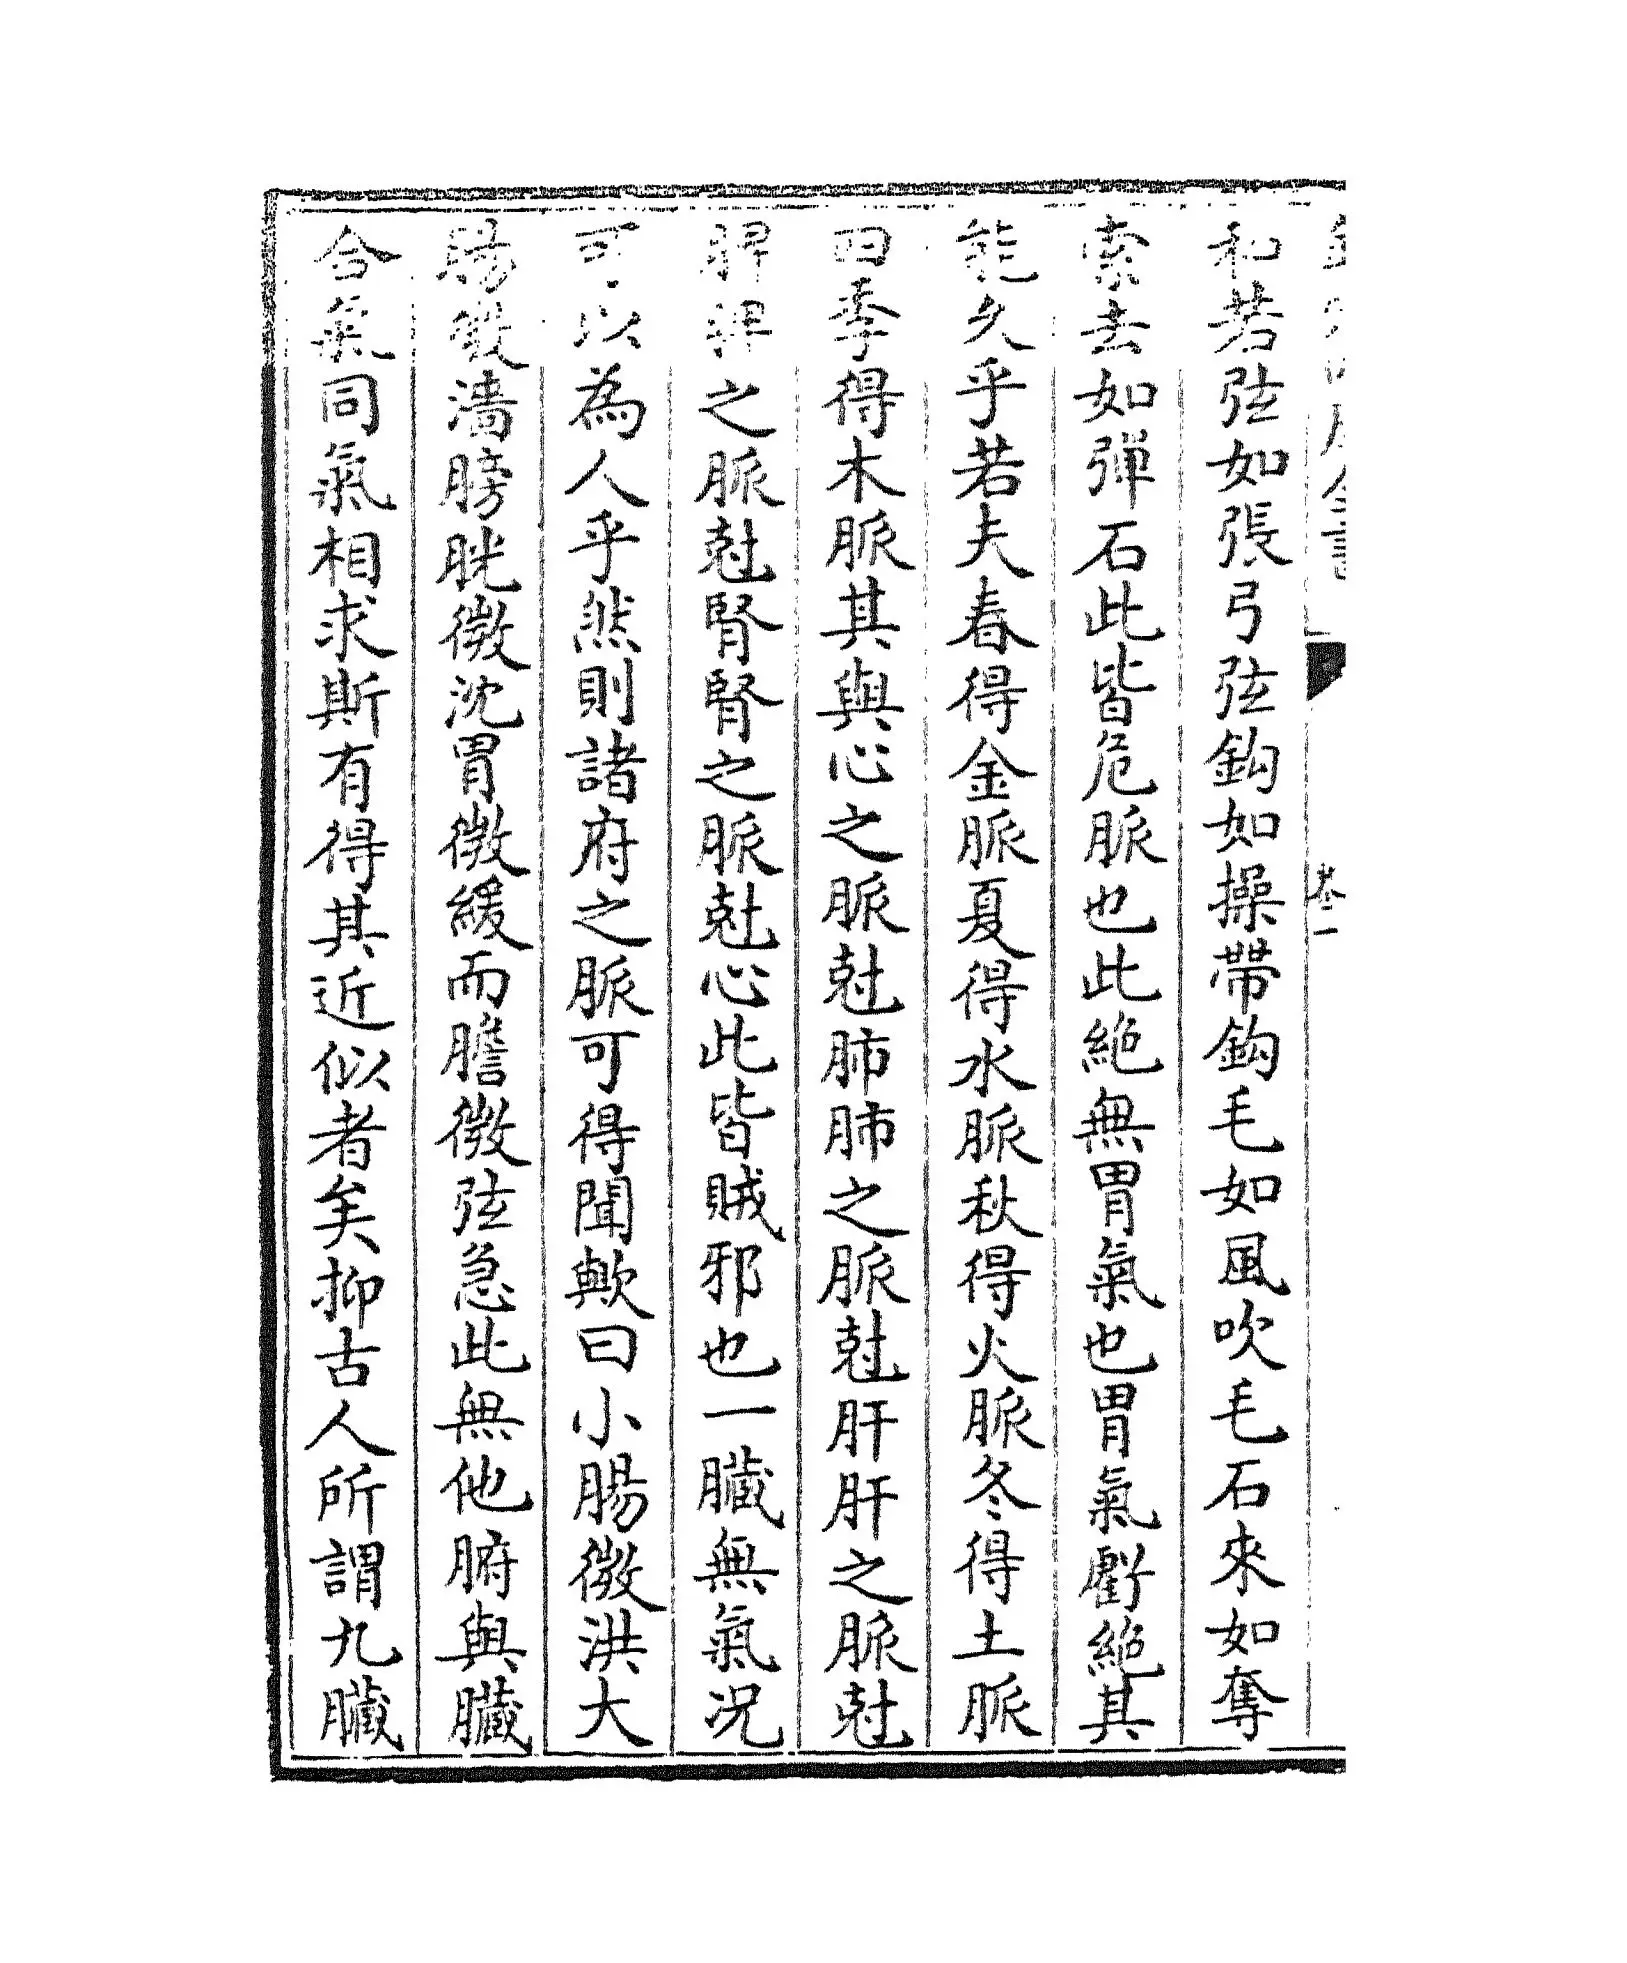 和若弦如張弓弦鈎如操帶鈎毛如風吹毛石來如奪
索去如彈石此皆危脈也此絶無胃氣也胃氣虧絶其
能久乎若夫春得金脈夏得水脈秋得火脈冬得土脈
四季得木脈其與心之脈尅肺肺之脈尅肝肝之脈尅
脾脾之脈尅腎腎之脈尅心此皆賊邪也一臟無氣况
可以為人乎然則諸府之脈可得聞歟曰小腸微洪大
腸微濇膀胱微沈胃微緩而膽微弦急此無他腑與臟
合氣同氣相求斯有得其近似者矣抑古人所謂九臟
卷一